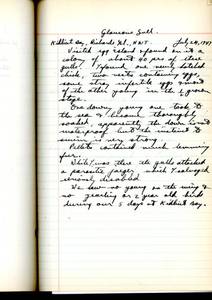 Glaucous Gull.
Kidluit Bay, Richards Isl., NWT July 24, 1947
Visited egg island & found on it a
colony of about 60 prs of these
gulls. I found one newly hatched
chick, two nests containing eggs,
some stray infertile eggs & most
of the other young in the ½ grown
stage.
One downy young one took to
the sea & became thoroughly
soaked, apparently the down is not
waterproof but the instinct to
swim is very strong.
Pellets contained much lemming
fur.
While I was there the gulls attacked
a parasitic jaeger which I salvaged
seriously disabled.
We saw no young on the wing & no
no yearling or 2 year old birds
during our 5 days at Kidluit Bay.